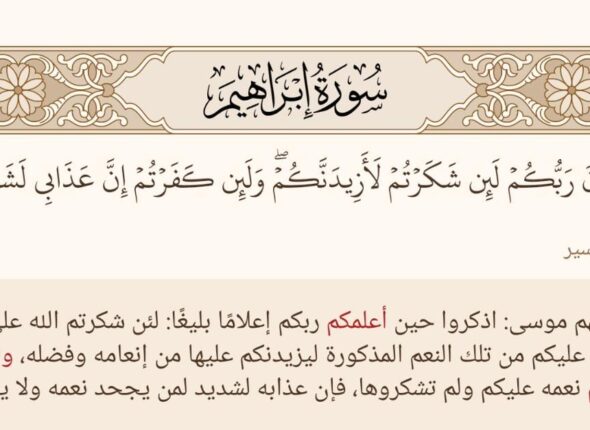 سُورَةُ إِبْرَاهِيمَ
رَبُّكُمْ لَئِن شَكَرْتُمْ لَأَزِيدَنَّكُمْ ۖ وَلَئِن كَفَرْتُمْ إِنَّ عَذَابِي
موسى: اذكروا حين أعلمكم ربكم إعلامًا بليغًا: لئن شكرتم الله
عليكم من تلك النعم المذكورة ليزيدنكم عليها من إنعامه وفضله،
نعمه عليكم ولم تشكروها، فإن عذابه لشديد لمن يجحد نعمه ولا